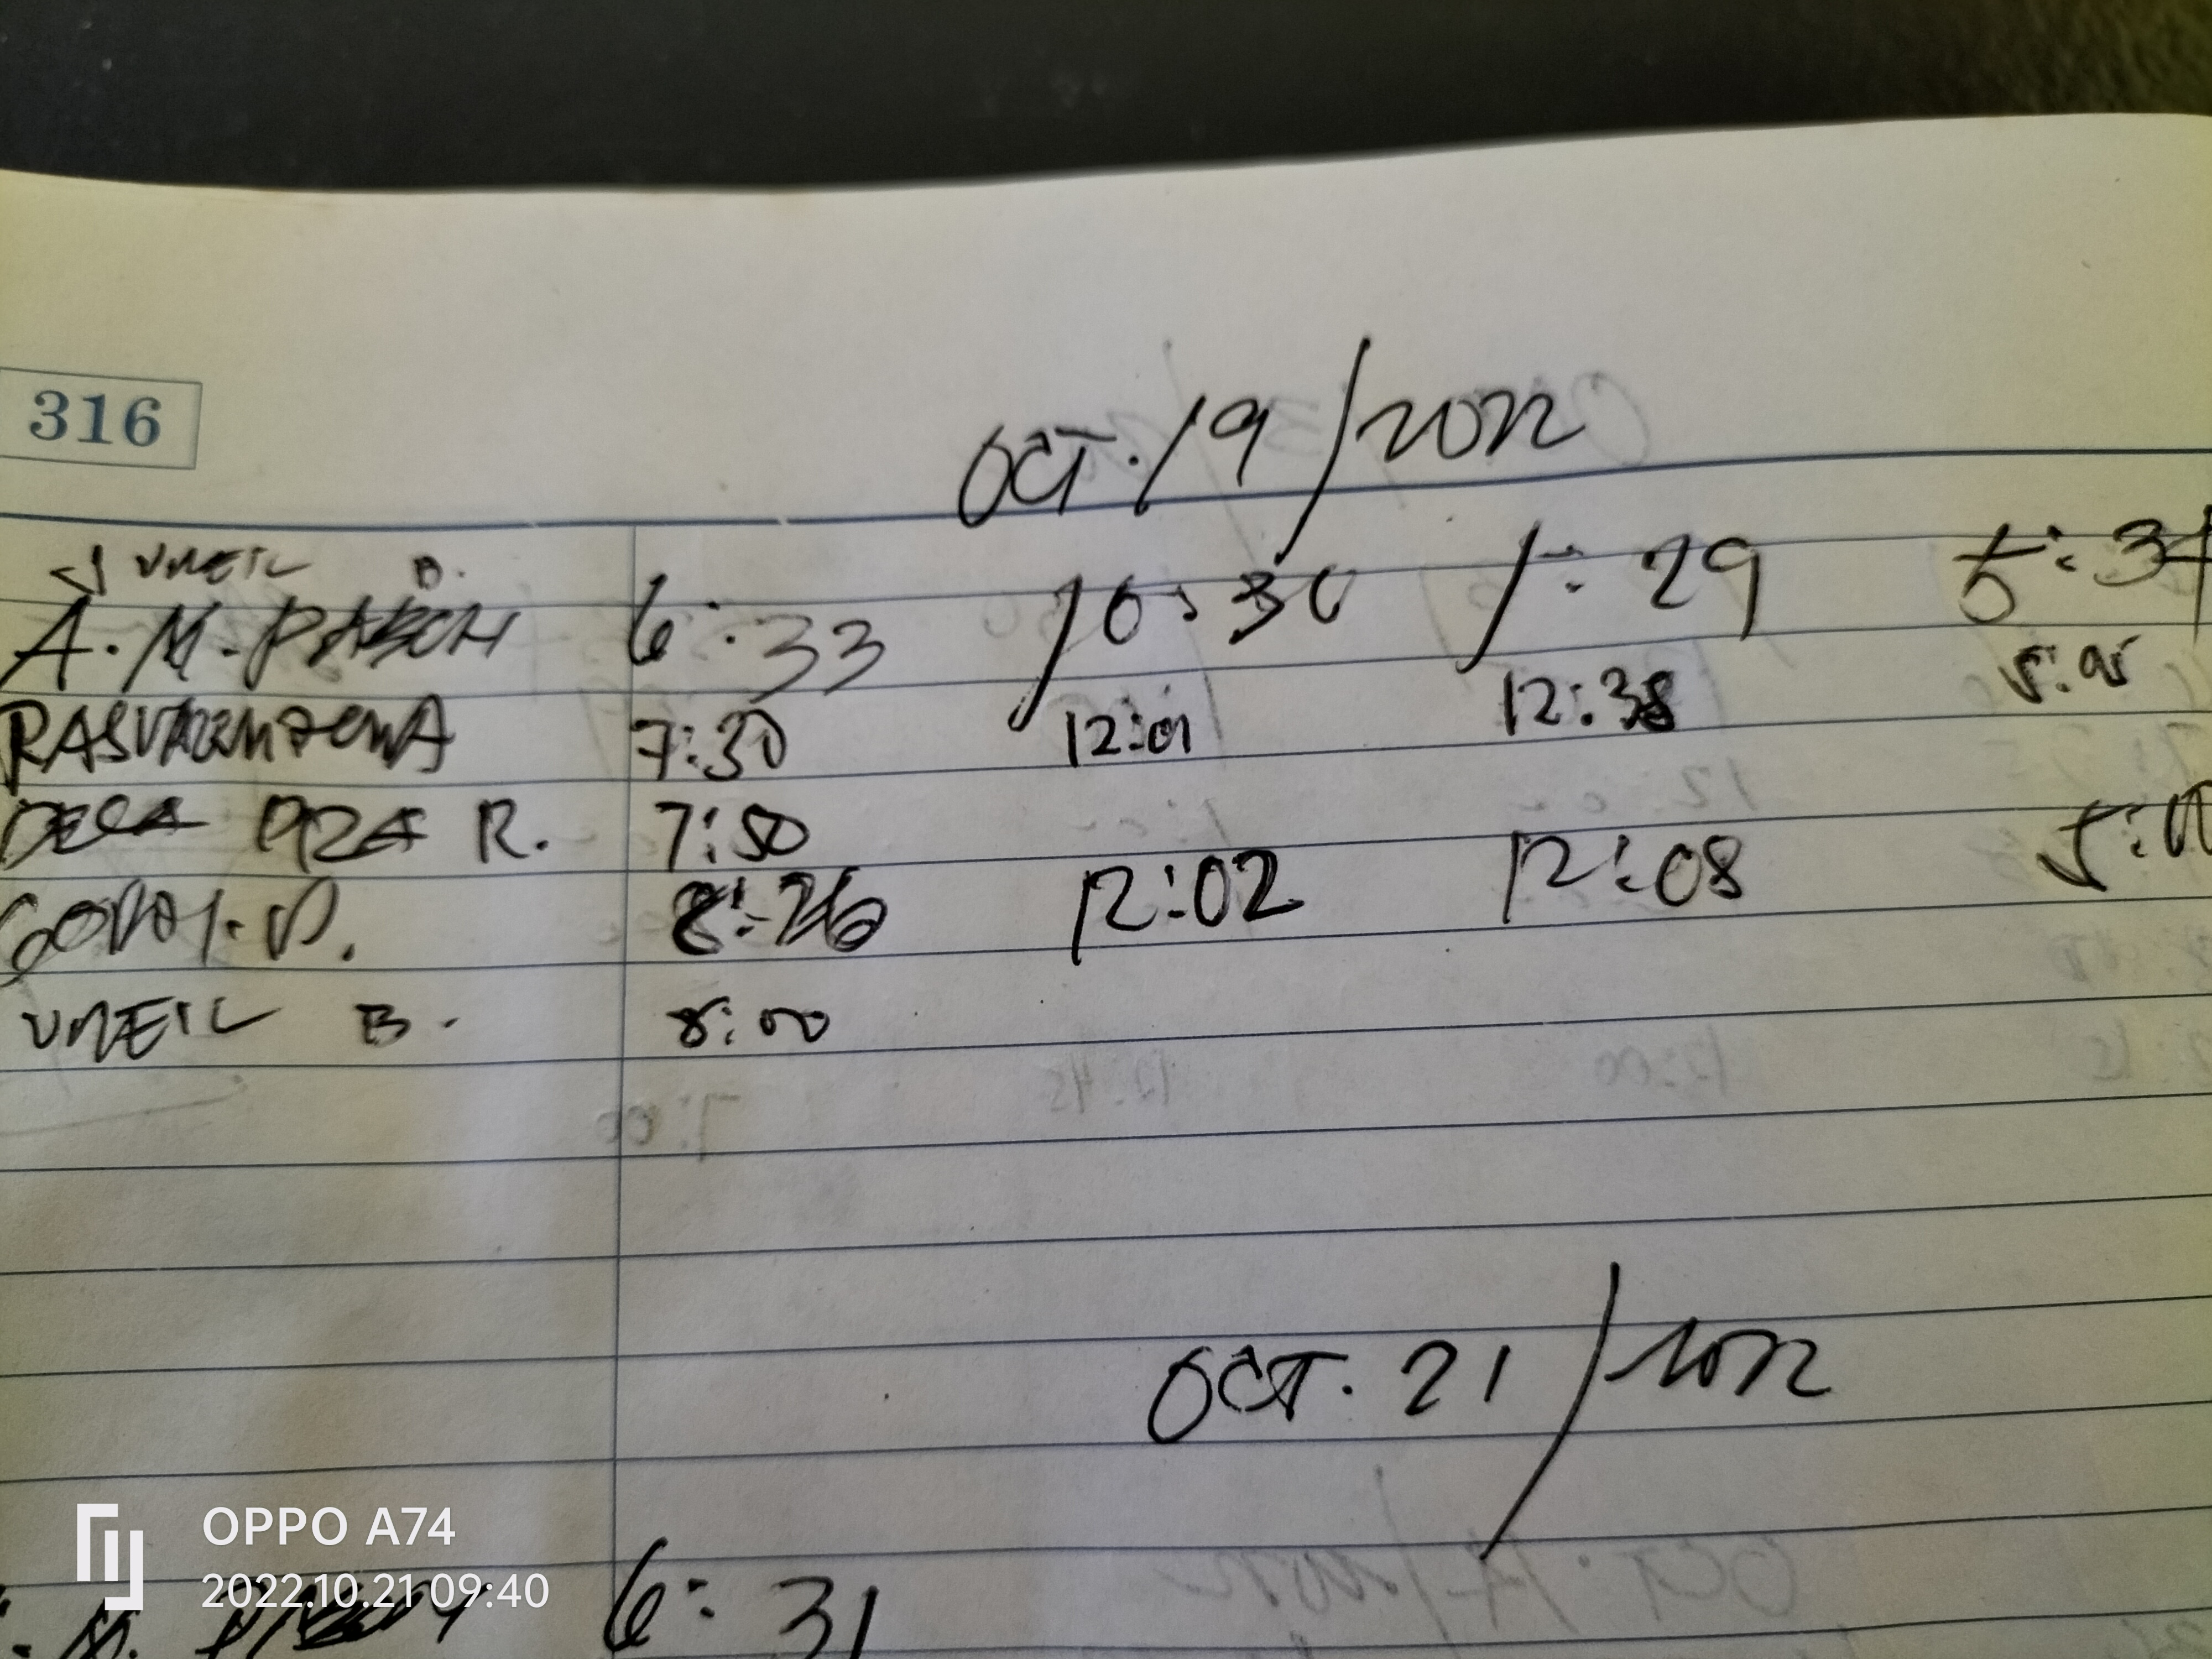 316
OCT. 19/2022
UNEIL B.
A. M. 6:33 10:30 1:29 5:34
7:30 12:01 12:38 5:05
DELA R. 7:50
8:26 12:02 12:08
UNEIL B. 8:00
OCT. 21/2022
OPPO A74
2022.10.21 09:40
M. 6:31